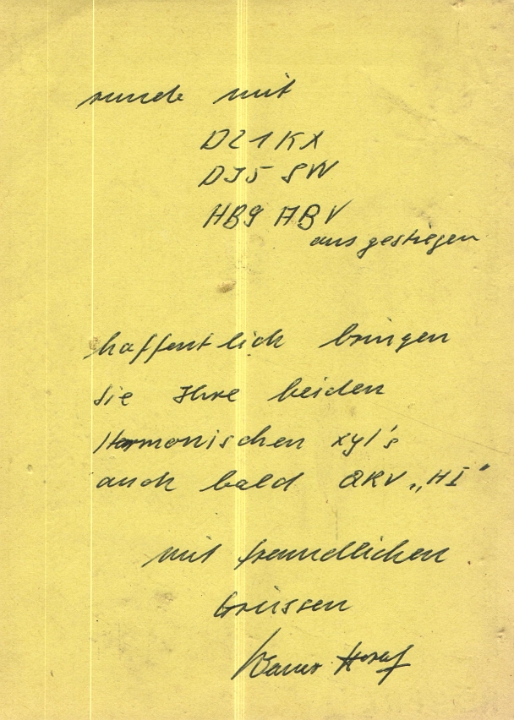 runde mit
DL1KX
DJ5 SW
HB9 ABV
aus gestiegen
hoffentlich bringen
Sie Ihre beiden
Harmonischen xyl's
auch bald QRV „HI"
mit freundlichen
Grüssen